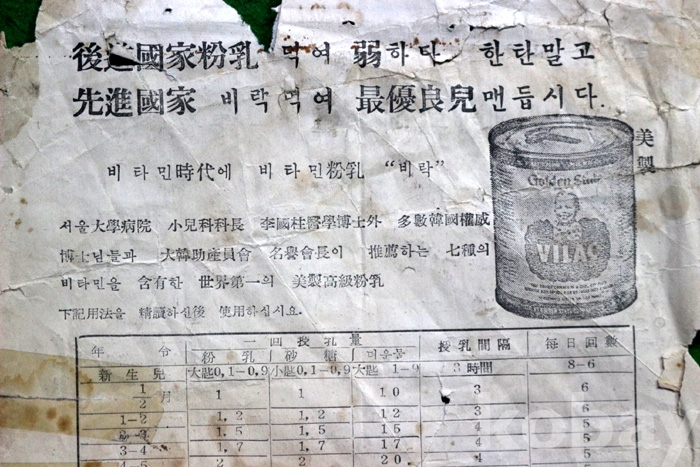 後進國家粉乳 먹여 弱하다 한탄말고
先進國家 비락먹여 最優良兒맨듭시다.
美製
비타민時代에 비타민粉乳 “비락”
Golden
VILAC
서울大學病院 小兒科科長 李國柱醫學博士外 多數韓國權威
博士님들과 大韓助産員會 名譽會長이 推薦하는 七種의
비타민을 含有한 世界第一의 美製高級粉乳
下記用法을 精讀하신後 使用하십시요.
年 令 一回授乳量 授乳間隔 每日回數
粉乳 砂糖 더운물
新生兒 大匙0,1-0,9 小匙0,1-0,9 大匙 1-9 3時間 8-6
1/2月 1 1 10 3 6
1-2 1,2 1,2 12 3 6
2-3 1,5 1,5 15 4 5
3-4 1,7 1,7 17 4 5
4-5 2 2 20 4 5
kobay